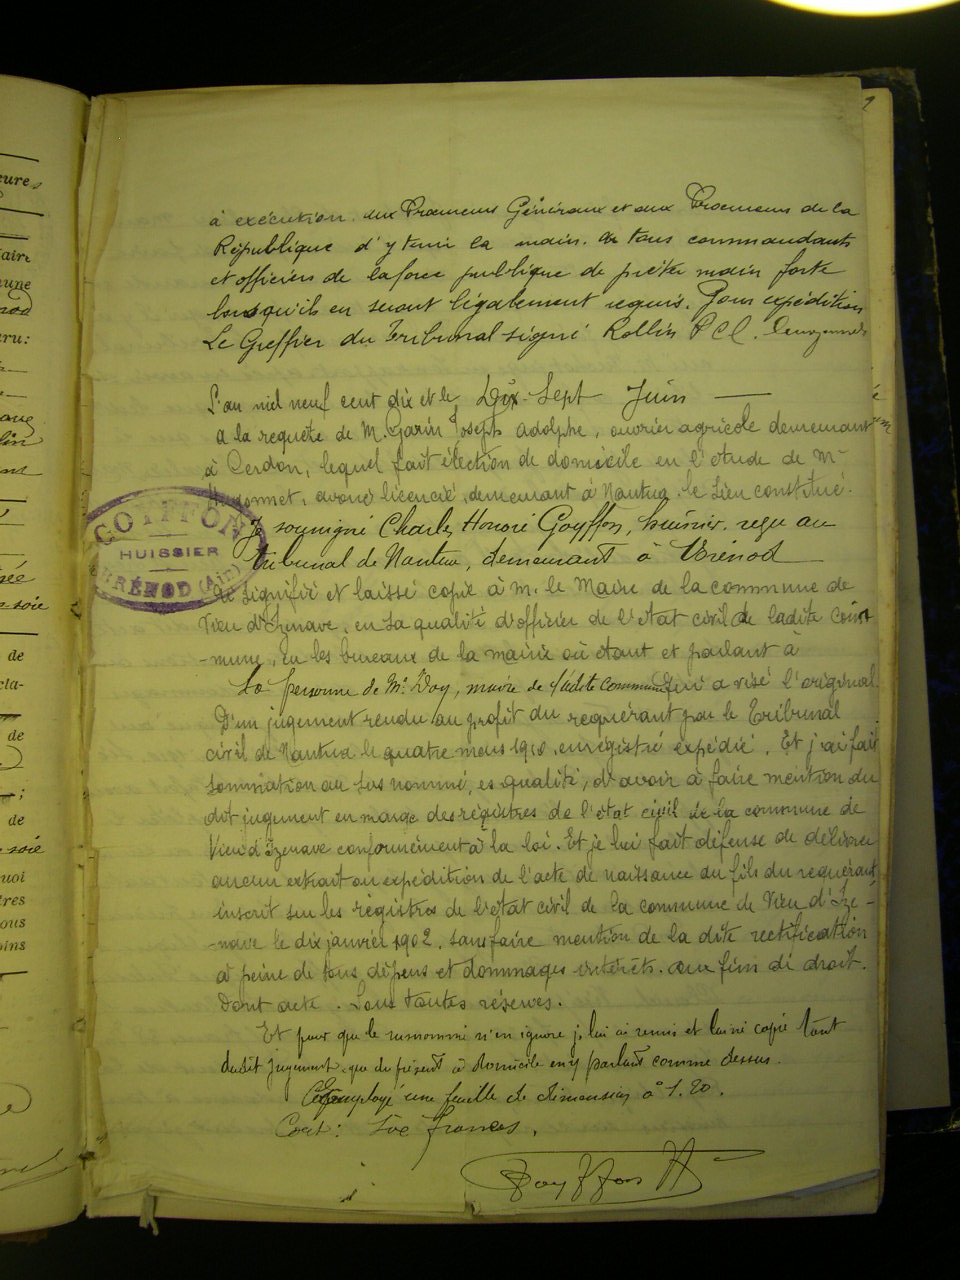 à exécution. aux Procureurs Généraux et aux Procureurs de la
République d'y tenir la main. A tous commandants
et officiers de la force publique de prêter main forte
lorsqu'ils en seront légalement requis. Pour expédition
Le Greffier du Tribunal signé Rollin P.C.C.
L'an mil neuf cent dix et le Dix-Sept Juin
a la requête de M. Garin Joseph adolphe, ouvrier agricole demeurant
à Cerdon, lequel fait élection de domicile en l'étude de Me
avoué licencié, demeurant à Nantua. le Lieu constitué.
Je soussigné Charles Honoré Goyffon, huissier, reçu au
tribunal de Nantua, demeurant à Brénod
GOYFFON
HUISSIER
BRÉNOD (Ain)
Ai signifié et laissé copie à M. le Maire de la commune de
Vieu d'Izenave, en sa qualité d'officier de l'état civil de ladite com
-mune, En les bureaux de la mairie où étant et parlant à
la personne de Mr Doy, maire de ladite commune qui a visé l'original.
D'un jugement rendu au profit du requérant par le Tribunal
civil de Nantua le quatre mars 1910, enregistré expédié. Et j'ai fait
sommation au sus nommé, es qualité, d'avoir à faire mention du
dit jugement en marge des registres de l'état civil de la commune de
Vieu d'Izenave conformément à la loi. Et je lui fait défense de délivrer
aucun extrait ou expédition de l'acte de naissance du fils du requérant,
inscrit sur les registres de l'état civil de la commune de Vieu d'Ize-
-nave le dix janvier 1902, sans faire mention de la dite rectification
à peine de tous dépens et dommages intérêts. aux fins de droit.
Dont acte. Sous toutes réserves.
Et pour que le susnommé n'en ignore je lui ai remis et laissé copie tant
dudit jugement que du présent à domicile en y parlant comme dessus.
Employé une feuille de dimension à 1.20.
Coût: Six francs.
Goyffon H